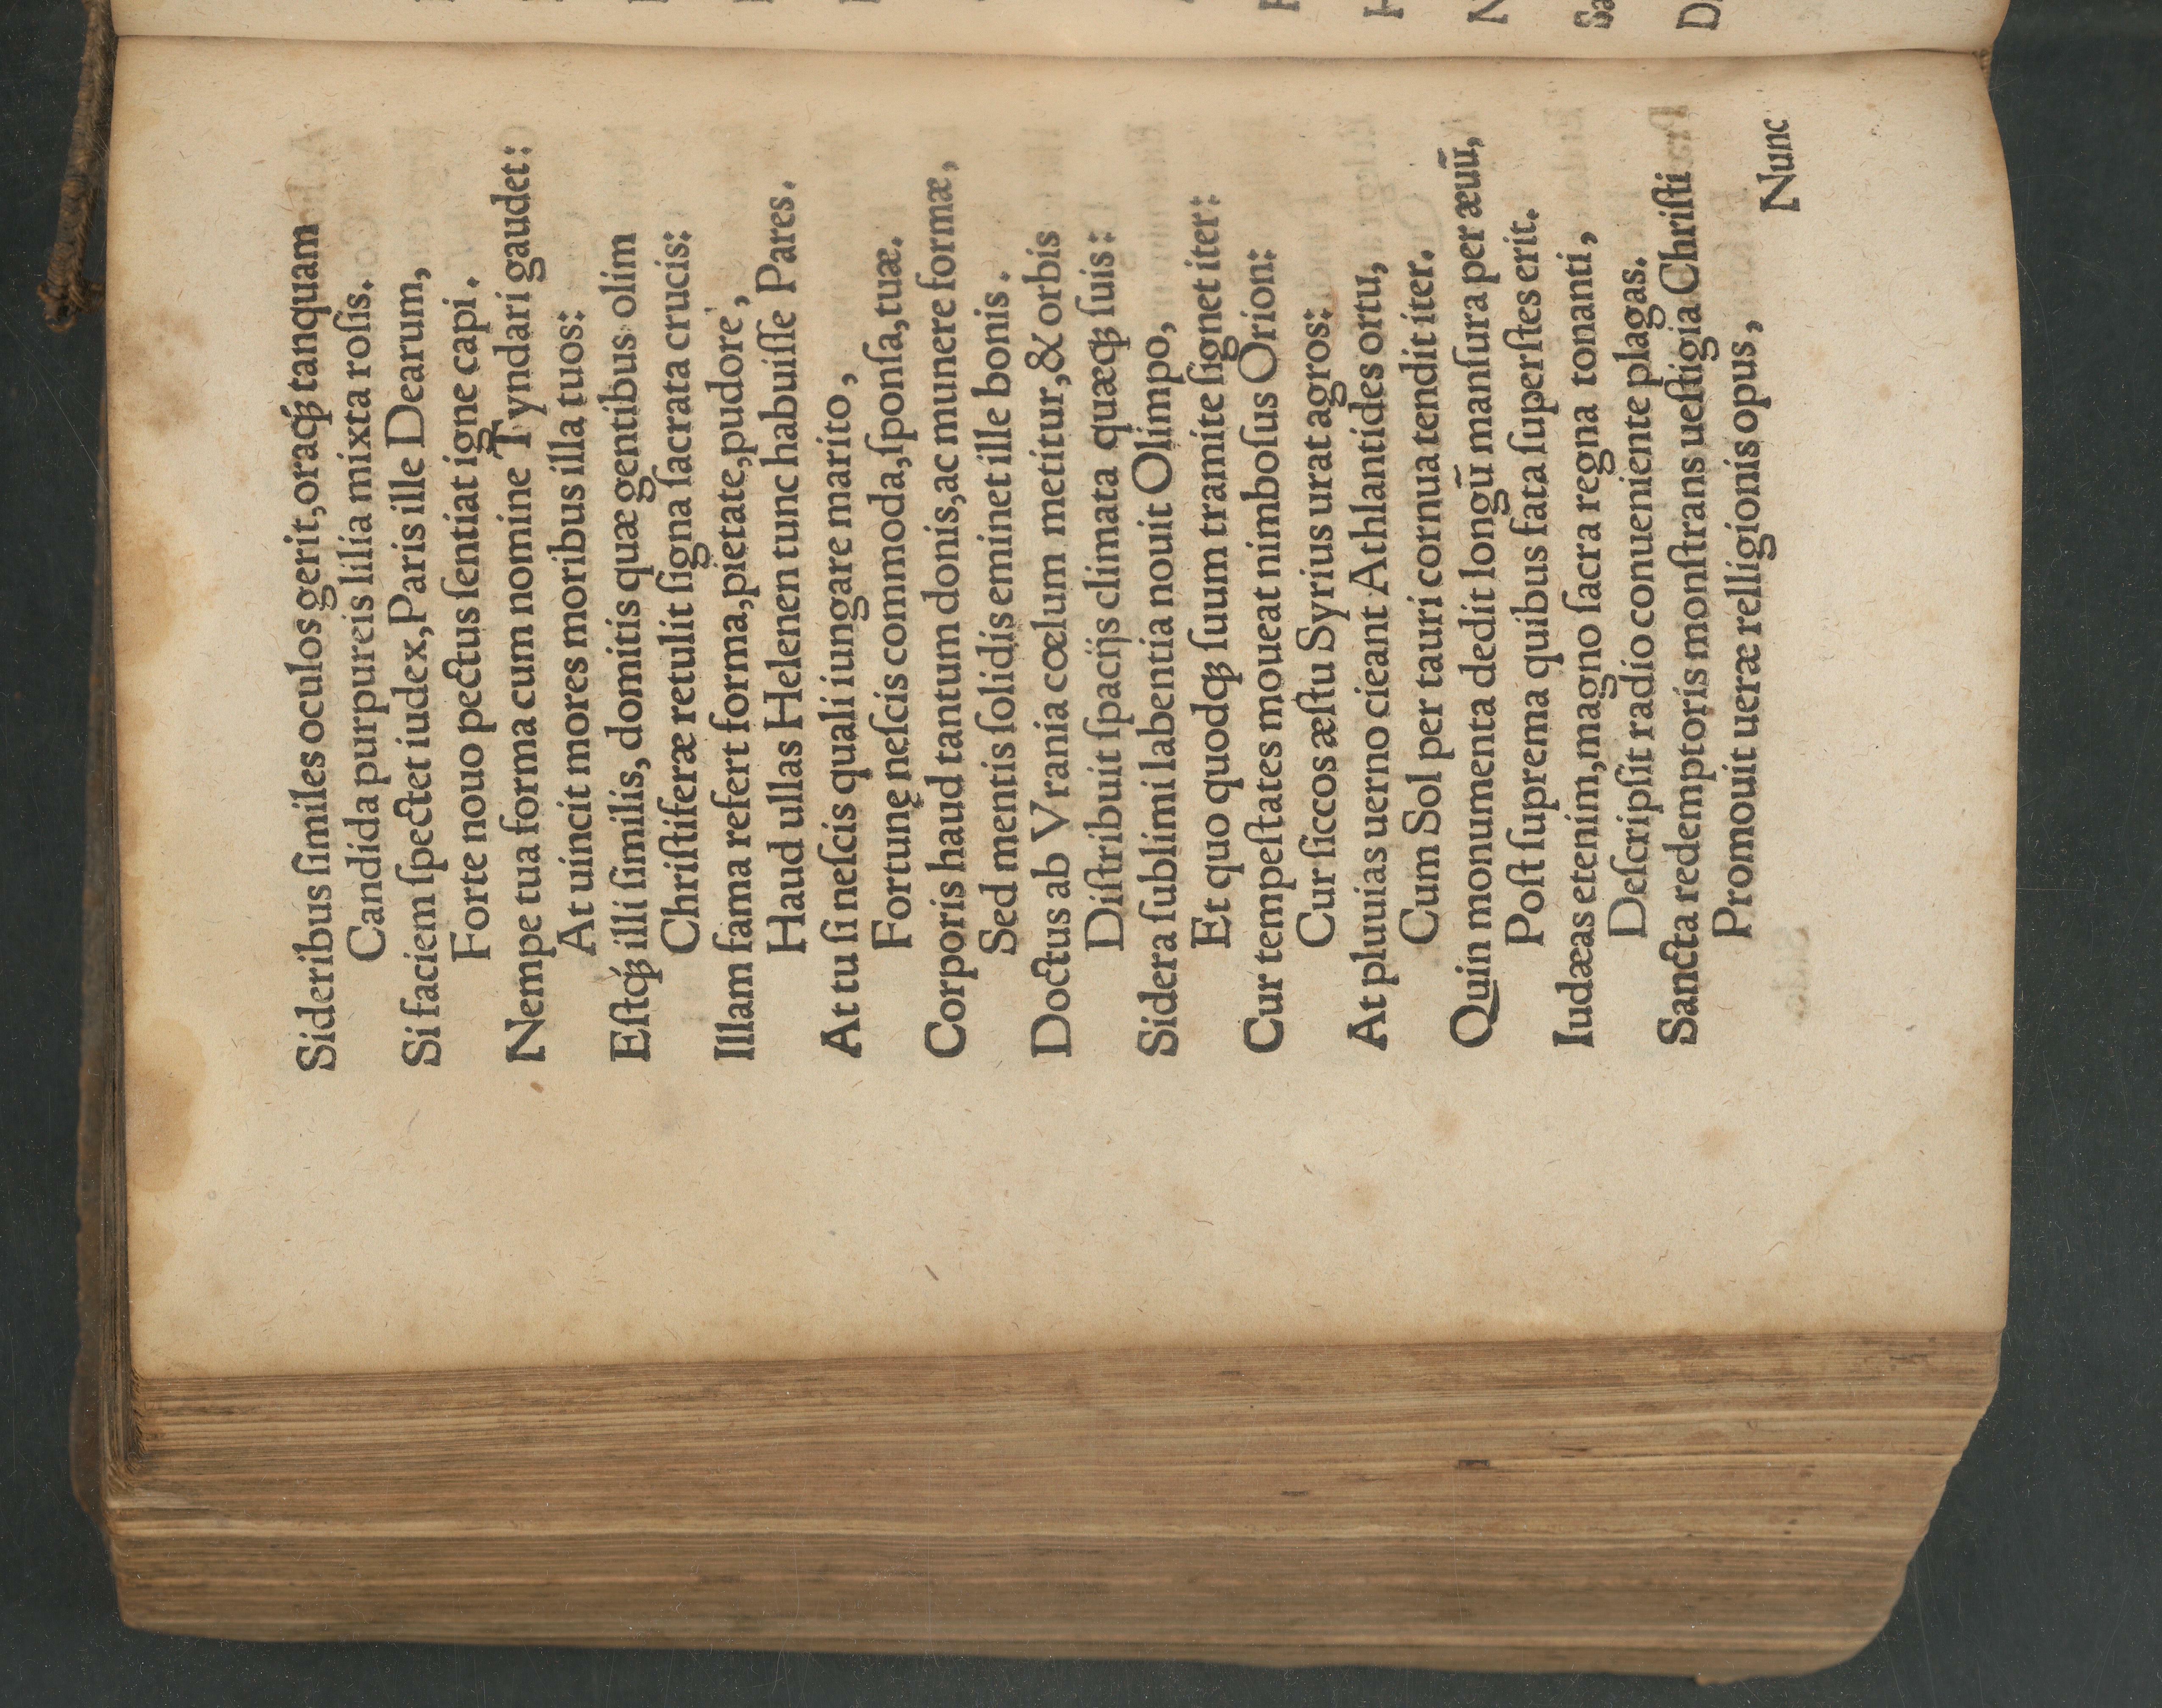 Sideribus ſimiles oculos gerit, oraq́ꝫ tanquam
Candida purpureis lilia mixta roſis.
Si faciem ſpectet iudex, Paris ille Dearum,
Forte nouo pectus ſentiat igne capi.
Nempe tua forma cum nomine Tyndari gaudet:
At uincit mores moribus illa tuos:
Eſtq́ꝫ illi ſimilis, domitis quæ gentibus olim
Chriſtiferæ retulit ſigna ſacrata crucis:
Illam fama refert forma, pietate, pudore,
Haud ullas Helenen tunc habuiſſe Pares.
At tu ſi neſcis quali iungare marito,
Fortunę neſcis commoda, ſponſa, tuæ.
Corporis haud tantum donis, ac munere formæ,
Sed mentis ſolidis eminet ille bonis.
Doctus ab Vrania cœlum metitur, & orbis
Diſtribuit ſpacijs climata quæqꝫ ſuis:
Sidera ſublimi labentia nouit Olimpo,
Et quo quodqꝫ ſuum tramite ſignet iter:
Cur tempeſtates moueat nimboſus Orion:
Cur ſiccos æſtu Syrius urat agros:
At pluuias uerno cieant Athlantides ortu,
Cum Sol per tauri cornua tendit iter.
Quin monumenta dedit longū manſura per æuū,
Poſt ſuprema quibus fata ſuperſtes erit.
Iudæas etenim, magno ſacra regna tonanti,
Deſcripſit radio conueniente plagas.
Sancta redemptoris monſtrans ueſtigia Chriſti
Promouit ueræ relligionis opus,
Nunc